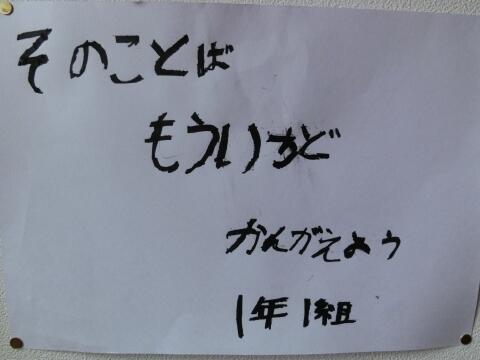 そのことば
もういちど
かんがえよう
1年1組